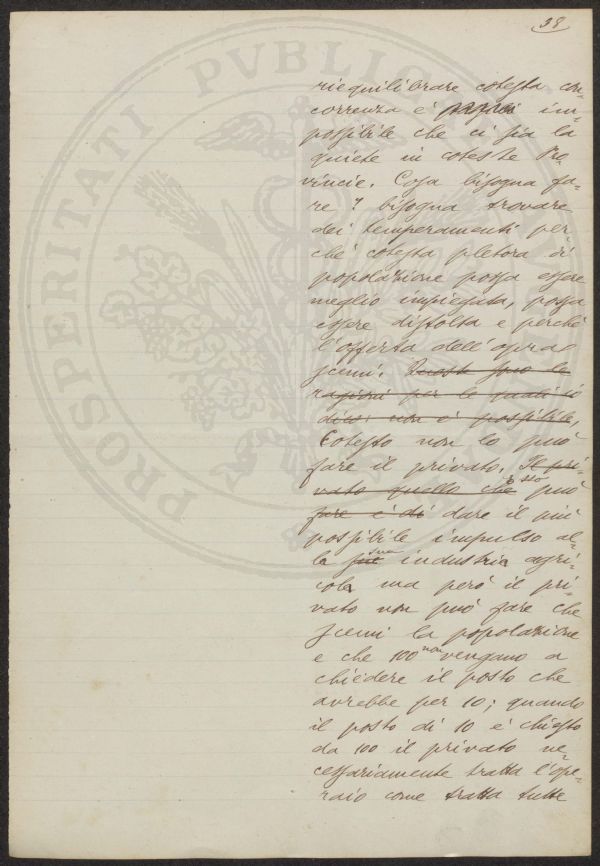 38
PROSPERITATI PVBLICAE
riequilibrare cotesta con-
correnza è im-
possibile che ci sia la
quiete in coteste Pro-
vincie. Cosa bisogna fa-
re? bisogna trovare
dei temperamenti per-
ché cotesta pletora di
popolazione possa essere
meglio impiegata, possa
essere distolta e perché
l'offerta dell'opra
scemi. Queste sono le
ragioni per le quali io
dico: non è possibile,
Cotesto non lo può
fare il privato. Il pri-
vato quello che può
fare è di dare il più
possibile impulso al-
la sua industria agri-
cola ma però il pri-
vato non può fare che
scemi la popolazione
e che 100 non vengano a
chiedere il posto che
avrebbe per 10; quando
il posto di 10 è chiesto
da 100 il privato ne-
cessariamente tratta l'ope-
raio come tratta tutte